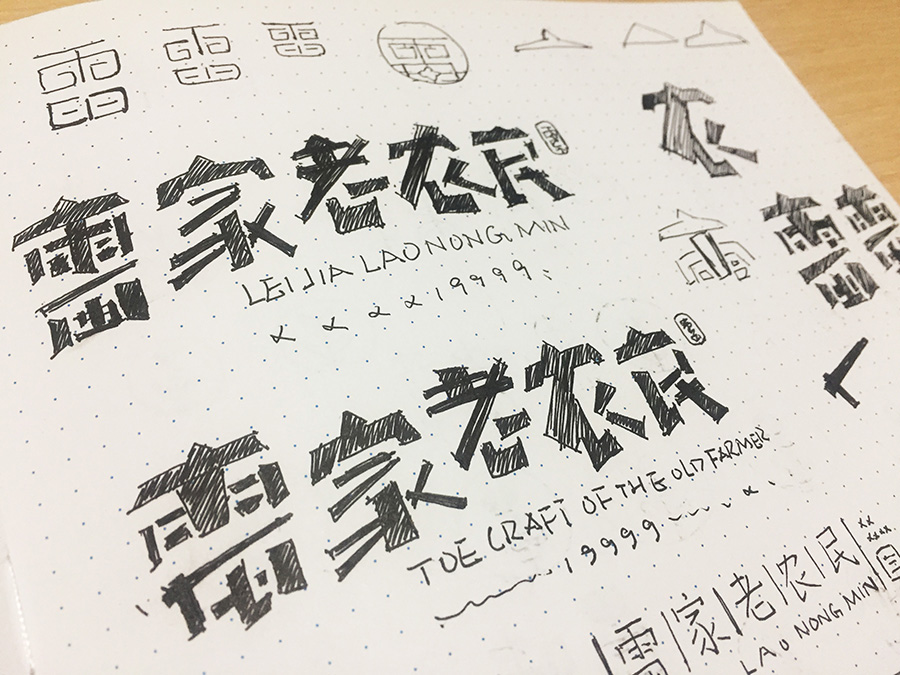 雷 雷 雷 雷
农
雷家老农民
LEI JIA LAO NONG MIN
x x x x 19999、
雷
雷家老农民
TOE CRAFT OF THE OLD FARMER
19999
雷家老农民
LAO NONG MIN